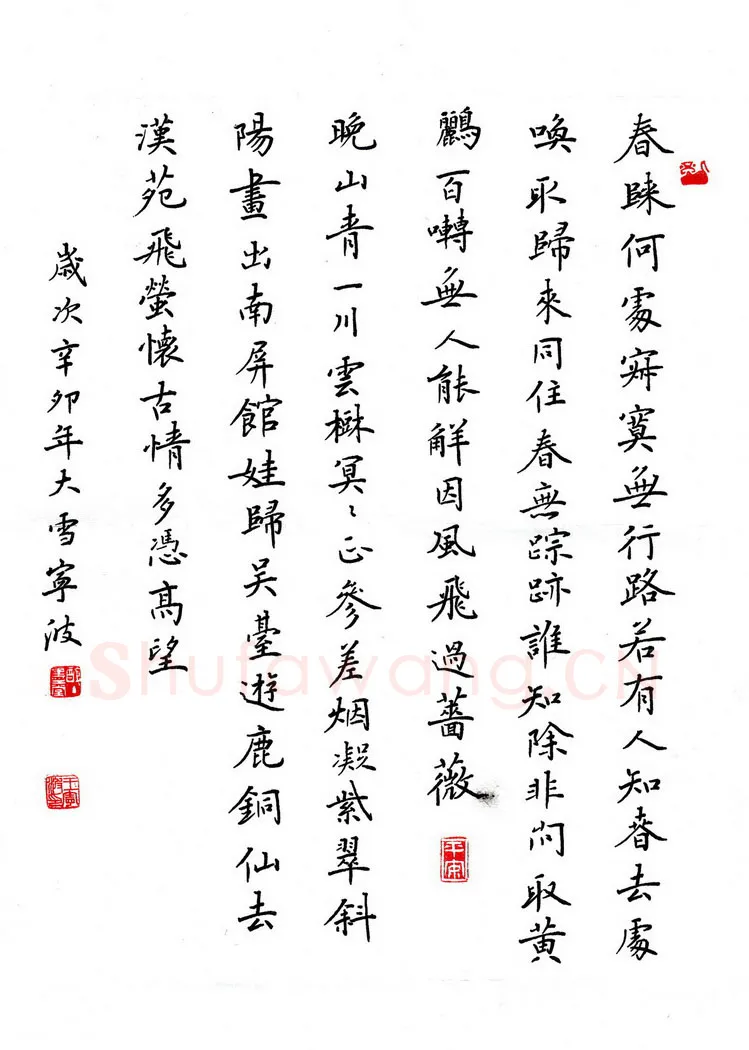 春歸何處寂寞無行路若有人知春去處
喚取歸來同住春無踪跡誰知除非问取黄
鸝百囀無人能解因風飛過薔薇
平安
晚山青一川雲樹冥〻正參差烟凝紫翠斜
陽畫出南屏館娃歸吴臺遊鹿銅仙去
漢苑飛螢懷古情多憑高望
歲次辛卯年大雪寧波
Shufawang.CN